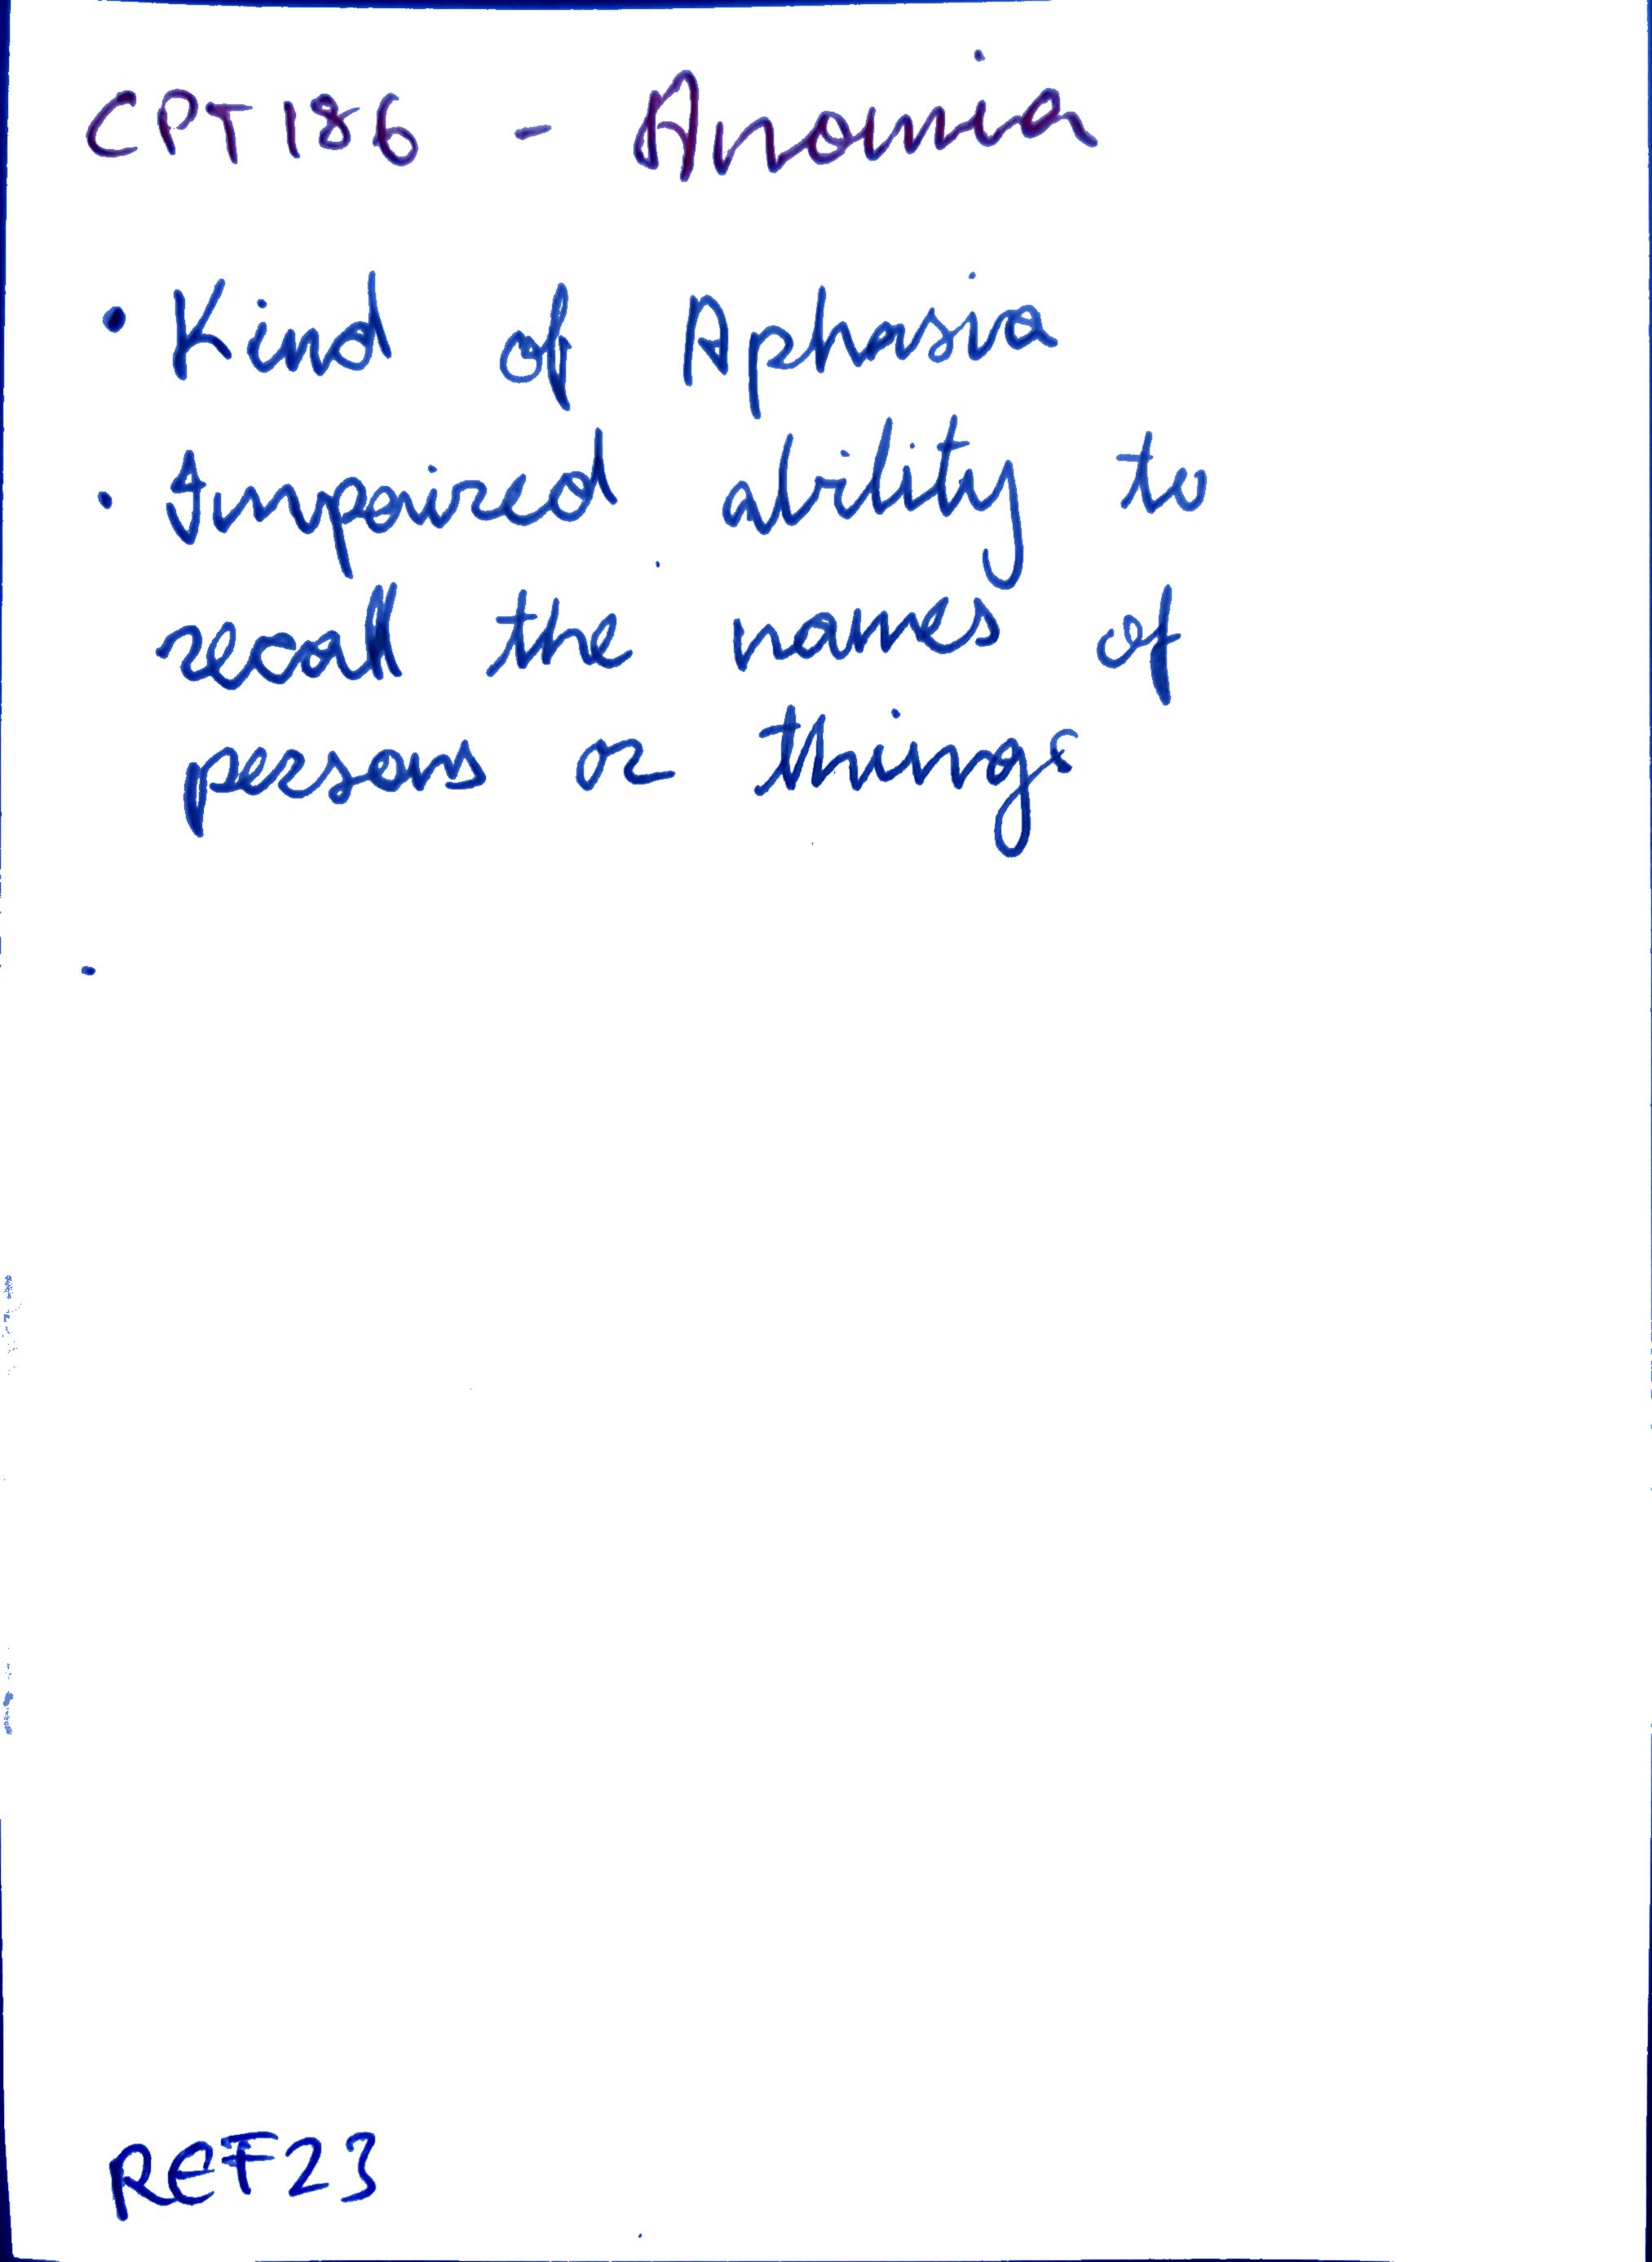 CPT186 - Anomia
• Kind of Aphasia
• Impaired ability to
recall the names of
persons or things
REF23